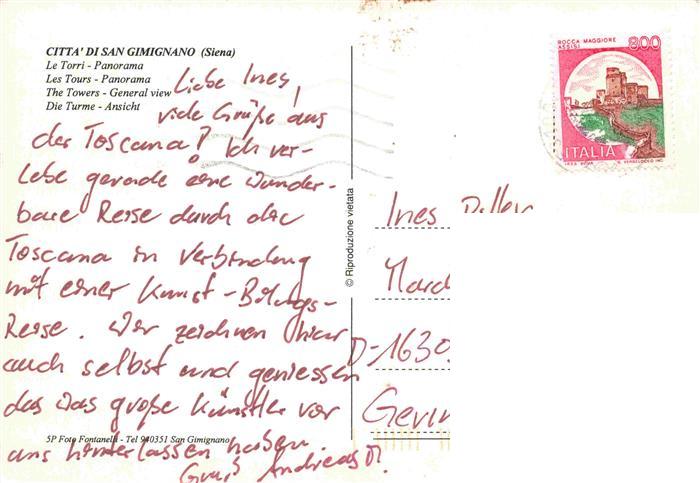 CITTA' DI SAN GIMIGNANO (Siena)
Le Torri - Panorama
Les Tours - Panorama
The Towers - General view
Die Turme - Ansicht
Liebe Ines,
viele Grüße aus
der Toscana! Ich ver-
lebe gerade eine wunder-
bare Reise durch die
Toscana in Verbindung
mit einer Kunst-Bildungs-
Reise. Wir zeichnen hier
auch selbst und geniessen
das was große Künstler vor
uns hinterlassen haben.
Gruß Andreas
5P Foto Fontanelli - Tel 940351 San Gimignano
© Riproduzione vietata
ROCCA MAGGIORE
ASSISI
800
ITALIA
Ines
D-1630